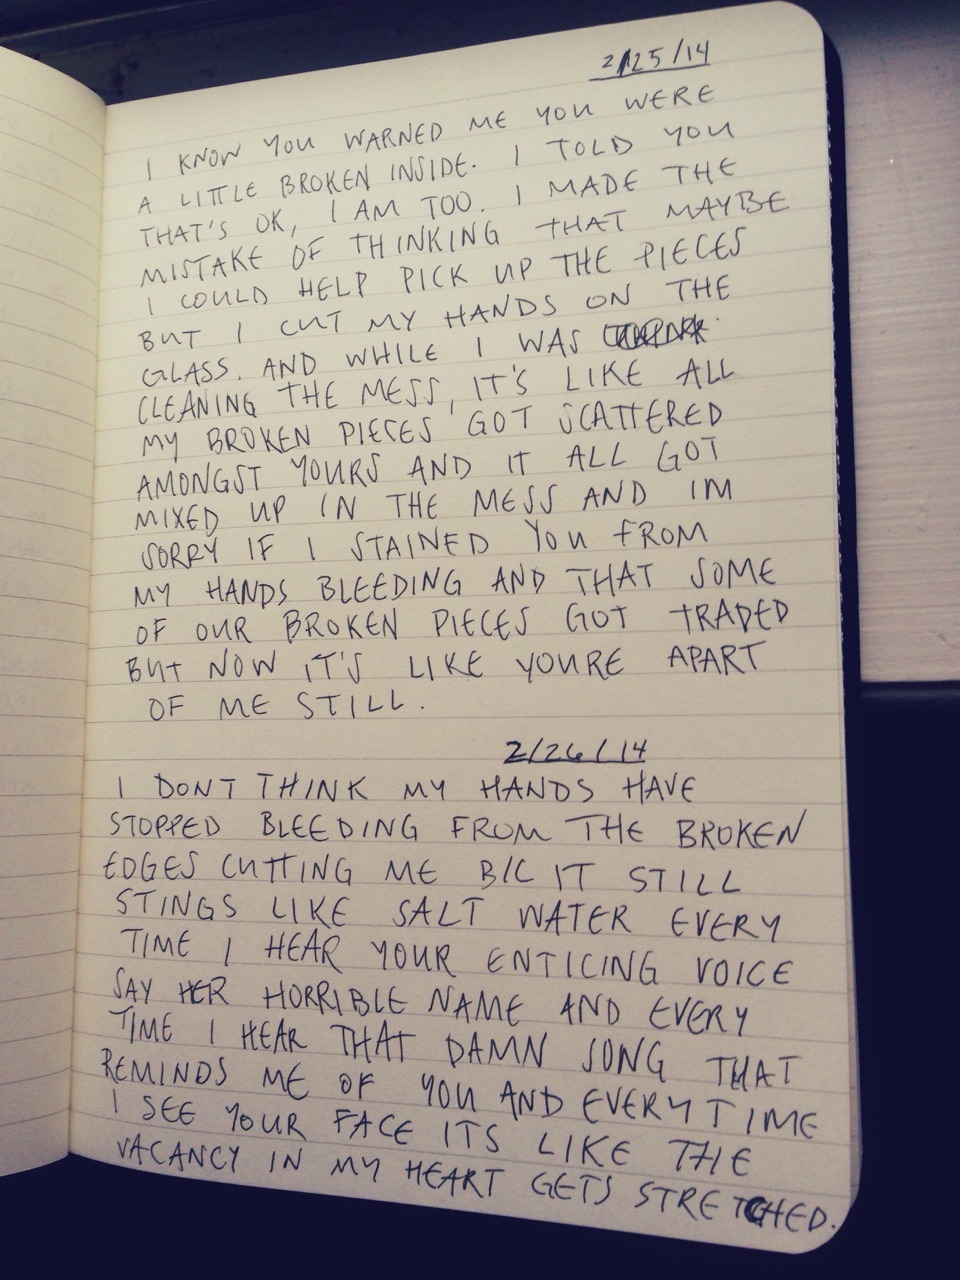 2/25/14
I KNOW YOU WARNED ME YOU WERE
A LITTLE BROKEN INSIDE. I TOLD YOU
THAT'S OK, I AM TOO. I MADE THE
MISTAKE OF THINKING THAT MAYBE
I COULD HELP PICK UP THE PIECES
BUT I CUT MY HANDS ON THE
GLASS. AND WHILE I WAS
CLEANING THE MESS, IT'S LIKE ALL
MY BROKEN PIECES GOT SCATTERED
AMONGST YOURS AND IT ALL GOT
MIXED UP IN THE MESS AND IM
SORRY IF I STAINED YOU FROM
MY HANDS BLEEDING AND THAT SOME
OF OUR BROKEN PIECES GOT TRADED
BUT NOW IT'S LIKE YOURE APART
OF ME STILL.
2/26/14
I DONT THINK MY HANDS HAVE
STOPPED BLEEDING FROM THE BROKEN
EDGES CUTTING ME B/C IT STILL
STINGS LIKE SALT WATER EVERY
TIME I HEAR YOUR ENTICING VOICE
SAY HER HORRIBLE NAME AND EVERY
TIME I HEAR THAT DAMN SONG THAT
REMINDS ME OF YOU AND EVERYTIME
I SEE YOUR FACE ITS LIKE THE
VACANCY IN MY HEART GETS STRETCHED.